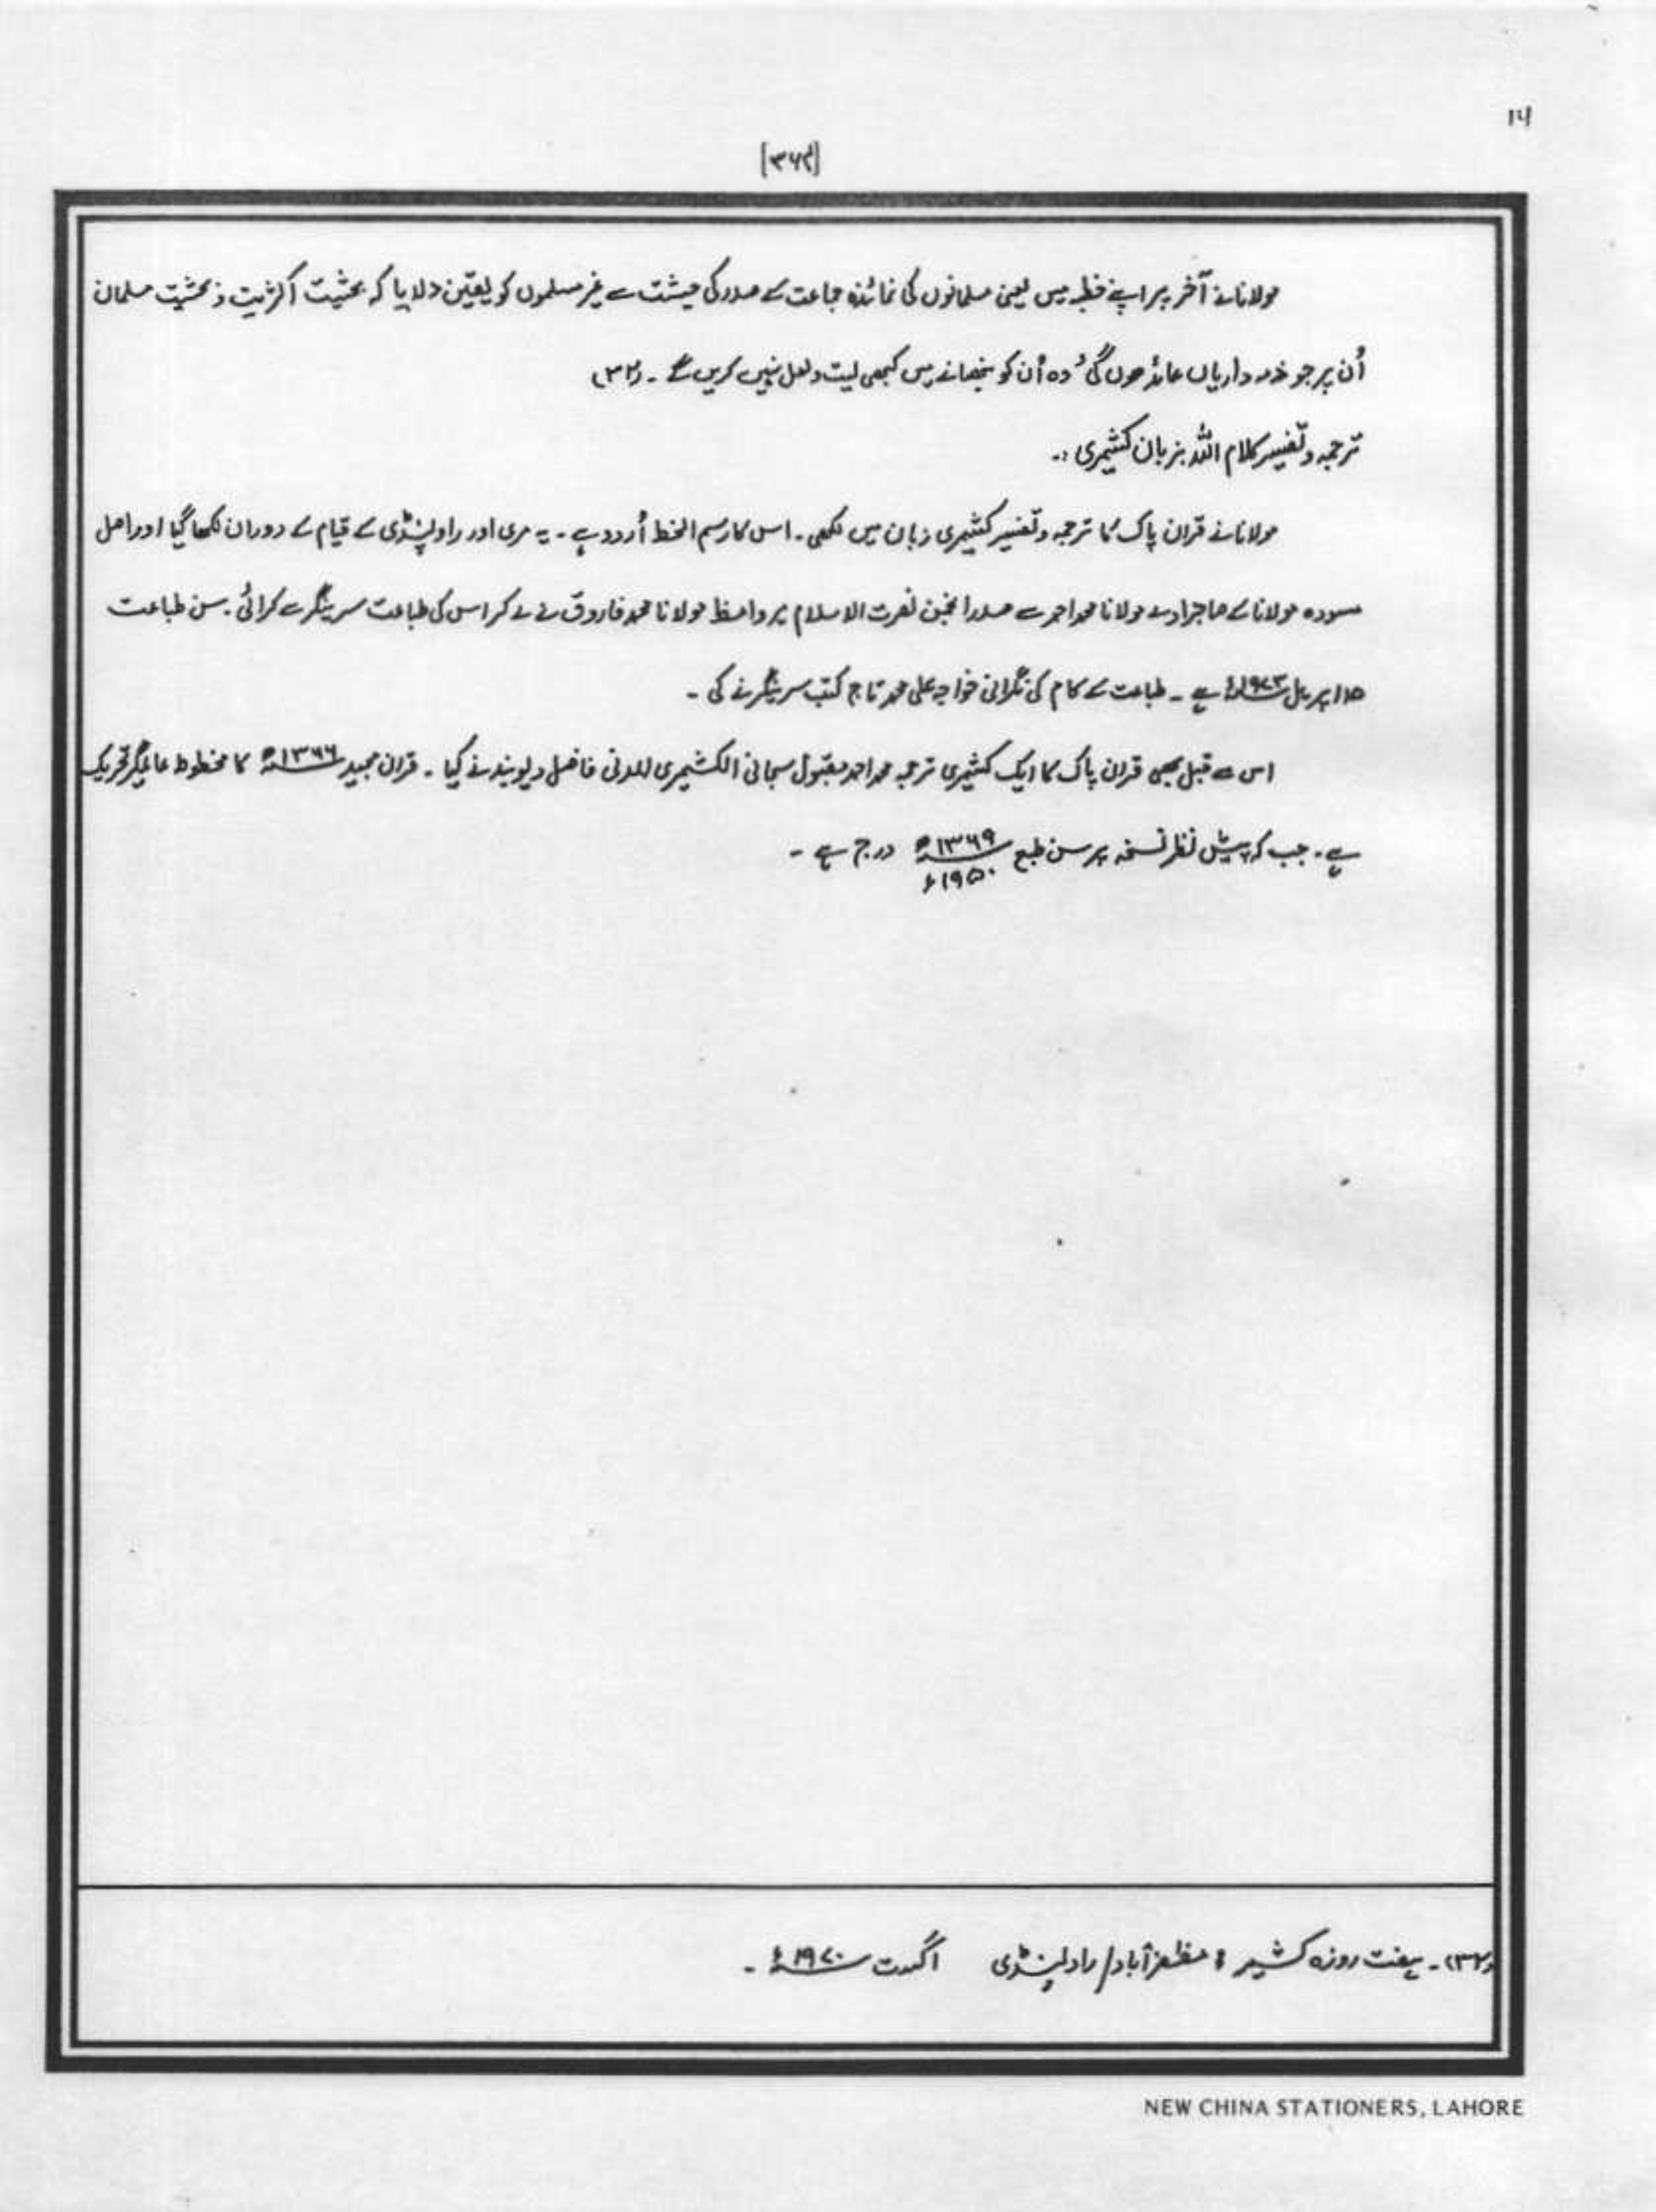 [۳۶۴]
مولانا نے آخر پر اپنے خطبہ میں یعنی مسلمانوں کی نمائندہ جماعت کے صدر کی حیشت سے غیر مسلموں کو یقین دلایا کہ بحثیت اکثریت و بحثیت مسلمان
اُن پر جو ذمہ داریاں عائد ھوں گی ، وہ اُن کو نبھانے میں کبھی لیت و لعل نہیں کریں گے ۔ (۳۲)
ترجمہ و تفسیر کلام اللّٰہ بزبان کشیمری :۔
مولانا نے قران پاک کا ترجمہ و تفسیر کشیمری زبان میں لکھی ۔ اس کا رسم الخط اُردو ہے ۔ یہ مری اور راولپنڈی کے قیام کے دوران لکھا گیا اور اصل
مسودہ مولانا کے صاحبزادے مولانا محمد احمد سے صدر انجمن نصرت الاسلام میر واعظ مولانا محمد فاروق نے لے کر اس کی طباعت سرینگر سے کرائی ۔ سن طباعت
۱۵ اپریل ۱۹۷۳ء ہے ۔ طباعت کے کام کی نگرانی خواجہ علی محمد تاجر کتب سرینگر نے کی ۔
اس سے قبل بھی قران پاک کا ایک کشیمری ترجمہ محمد احمد مقبول سبحانی الکشیمری المدنی فاضل دیوبند نے کیا ۔ قران مجید ۱۳۶۶ھ کا مخطوط عالمگیر تحریک
ہے ۔ جب کہ پیش نظر نسخہ پر سن طبع ۱۳۶۹ھ درج ہے ۔
۱۹۵۰ء
(۳۲) ۔ ہفت روزہ کشیر ؛ مظفر آباد/ راولپنڈی اگست ۱۹۷۰ء ۔
NEW CHINA STATIONERS, LAHORE